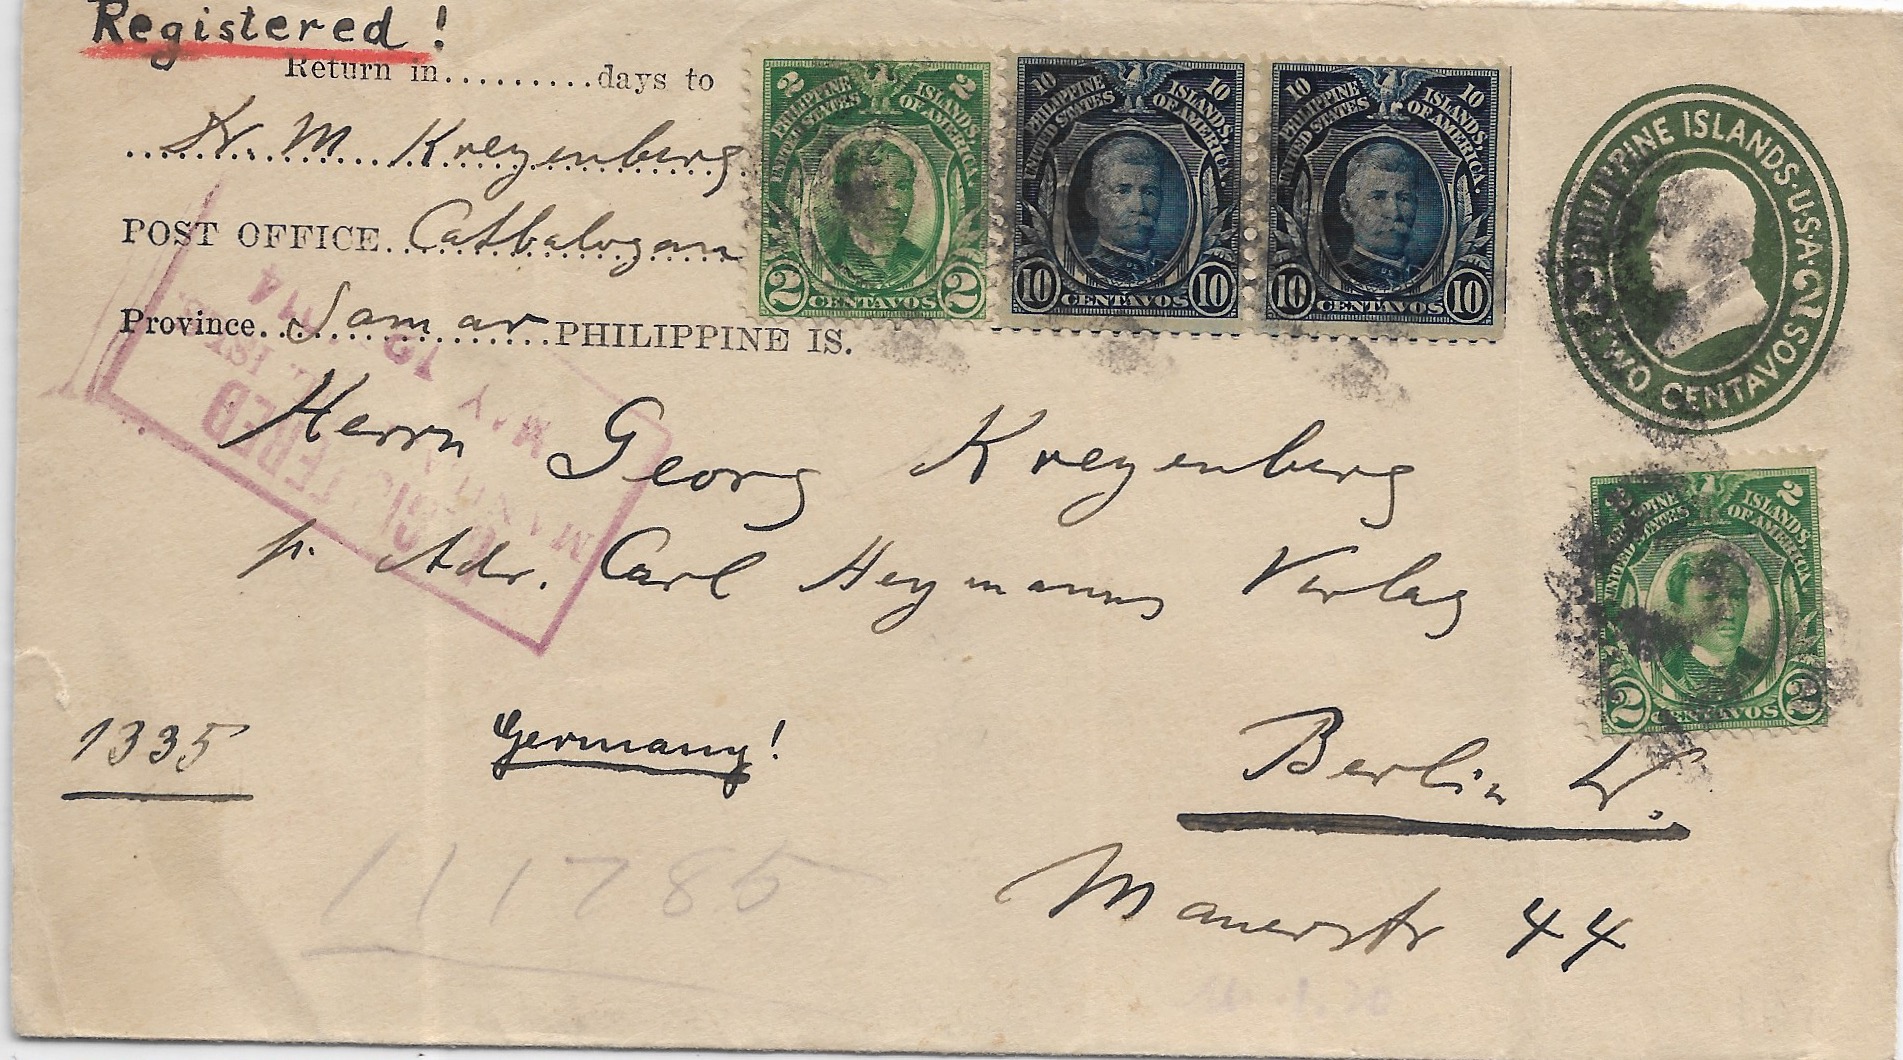 Registered!
Return in.........days to
Dr. M. Kreyenberg
POST OFFICE. Catbalogan
Province. Samar PHILIPPINE IS.
2 2
PHILIPPINE ISLANDS,
UNITED STATES OF AMERICA.
2 CENTAVOS 2
10 10
PHILIPPINE ISLANDS,
UNITED STATES OF AMERICA.
10 CENTAVOS 10
10 10
PHILIPPINE ISLANDS,
UNITED STATES OF AMERICA.
10 CENTAVOS 10
PHILIPPINE ISLANDS·U·S·A·
TWO CENTAVOS
REGISTERED
MANILA
MAY
1914
Herrn Georg Kreyenberg
p. Adr. Carl Heymanns Verlag
2 2
PHILIPPINE ISLANDS,
UNITED STATES OF AMERICA.
2 CENTAVOS 2
1335
Germany!
Berlin W.
111785
Mauerstr 44